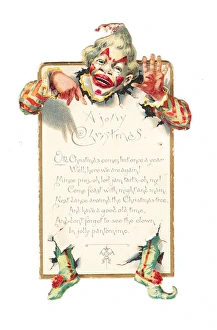 A jolly
Christmas.
Oh Christmas comes but once a year
Well, here we are again!
Mince pies, oh lor! jam tarts, oh my!
Come feast with might and main,
Next dance around the Christmas tree,
And have a good old time,
And don't forget to see the clown
In jolly pantomime.